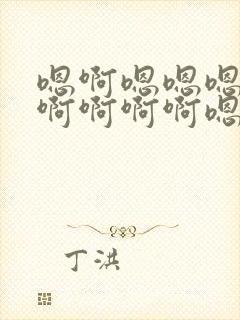 嗯啊嗯嗯嗯
啊啊啊啊嗯
丁洪